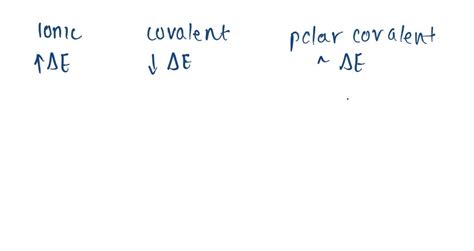 Ionic covalent polar covalent
↑ΔE ↓ ΔE ~ ΔE